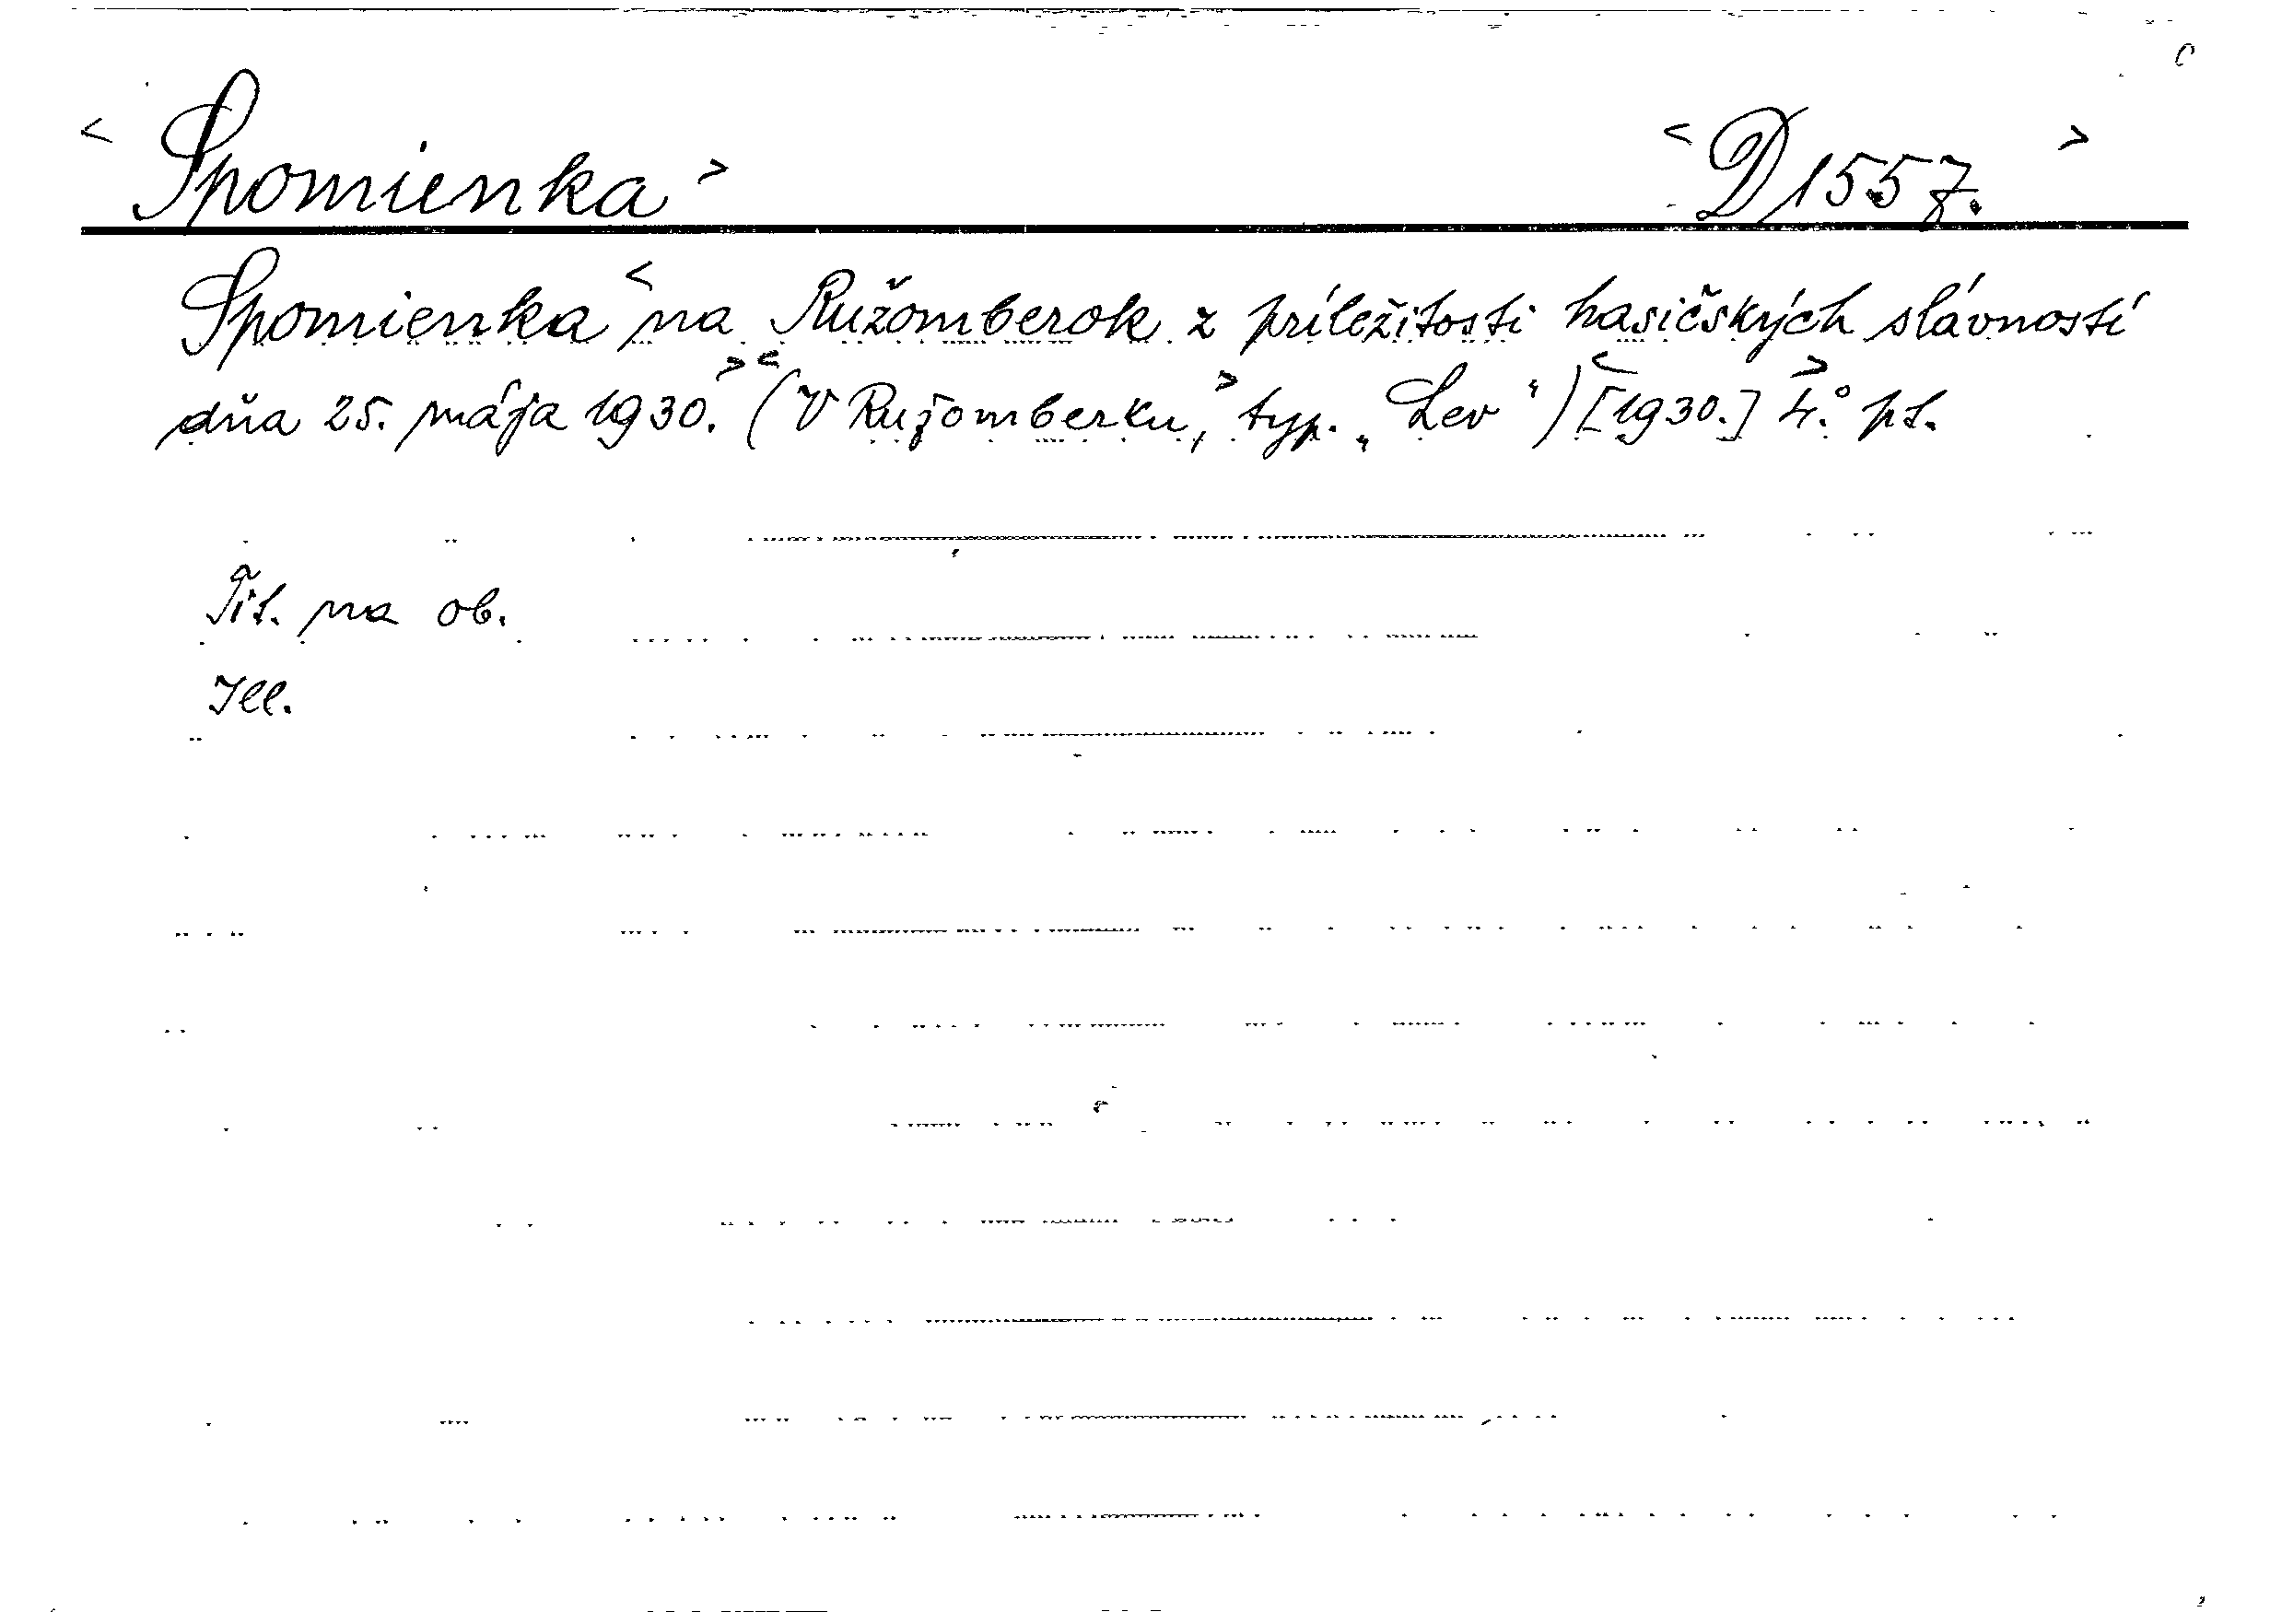 < Spomienka > < D 1557. >
Spomienka < na Ružomberok z príležitosti hasičských slávností
dňa 25. mája 1930. > < (V Ružomberku, > typ. „Lev“) < [1930.] > 4.° pt.
Tit. na ob.
Ill.